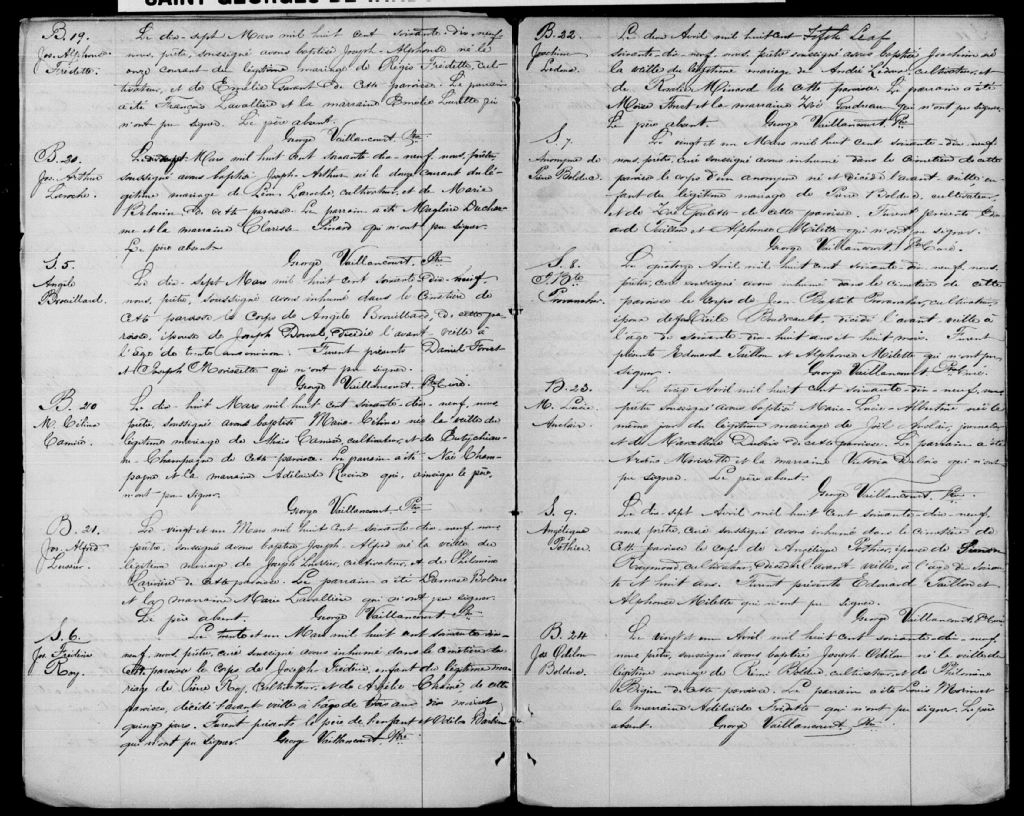 SAINT-GEORGES DE
B. 19.
Jos. Alphonse
Fredette.
Le dix-sept Mars mil huit cent soixante-dix-neuf
nous, prêtre, soussigné avons baptisé Joseph-Alphonse né le
onze courant du légitime mariage de Régis Fredette, cul-
tivateur, et de de cette paroisse. Le parrain
a été François Lavallière et la marraine qui
n'ont pu signer. Le père absent.
George Vaillancourt Ptre
B. 20.
Jos. Arthur
Laroche.
Le Mars mil huit cent soixante dix-neuf, nous, prêtre,
soussigné avons baptisé Joseph-Arthur né le douze courant du lé-
gitime mariage de Laroche, cultivateur, et de Marie
de cette paroisse. Le parrain a été Magloire Duchar-
me et la marraine Clarisse Pinard qui n'ont pu signer.
Le père absent.
George Vaillancourt, Ptre
S. 5.
Angèle
Brouillard.
Le dix-sept Mars mil huit cent soixante-dix-neuf,
nous, prêtre, soussigné avons inhumé dans le Cimetière de
cette paroisse le corps de Angèle Brouillard, de cette pa-
roisse, épouse de Joseph décédée l'avant-veille à
l'âge de trente ans environ. Furent présents Daniel
et Joseph Morissette qui n'ont pu signer.
George Vaillancourt Ptre Curé.
B. 20
M. Célina
Le dix huit Mars mil huit cent soixante-dix-neuf, nous
prêtre, soussigné avons baptisé Marie-Célina née la veille du
légitime mariage de cultivateur, et de
Champagne de cette paroisse. Le parrain a été Cham-
pagne et la marraine Adelaide Racine qui, ainsi que le père,
n'ont pu signer.
George Vaillancourt Ptre
B. 21.
Jos. Alfred
Lussier.
Le vingt et un Mars mil huit cent soixante-dix-neuf, nous
prêtre, soussigné avons baptisé Joseph-Alfred né la veille du
légitime mariage de Joseph Lussier, cultivateur, et de Philomène
Larivière de cette paroisse. Le parrain a été Damase Bolduc
et la marraine Marie Lavallière qui n'ont pu signer.
Le père absent. George Vaillancourt Ptre
S. 6.
Jos. Frédéric
Roy.
Le trente et un Mars mil huit cent soixante dix-
neuf, nous, prêtre, curé soussigné avons inhumé dans le cimetière de
cette paroisse le corps de Joseph Frédéric, enfant du légitime ma-
riage de Pierre Roy, cultivateur, et de Angèle de cette
paroisse, décédé l'avant veille à l'âge de trois ans dix mois et
quinze jours. Furent présents le père de l'enfant et Odilon
qui n'ont pu signer. George Vaillancourt Ptre
B. 22.
Joachim
Leduc.
Le deux Avril mil huit cent
soixante-dix-neuf, nous, prêtre soussigné avons baptisé Joachim né
la veille du légitime mariage de André Leduc, cultivateur, et
de Rosalie Ménard de cette paroisse. Le parrain a été
Moïse et la marraine Zoé Gendreau qui n'ont pu signer.
Le père absent. George Vaillancourt Ptre
S. 7.
Anonyme de
Pierre Bolduc.
Le vingt et un Mars mil huit cent soixante-dix-neuf
nous, prêtre, curé soussigné avons inhumé dans le cimetière de cette
paroisse le corps d'un anonyme né et décédé l'avant-veille, en-
fant du légitime mariage de Pierre Bolduc, cultivateur,
et de Zoé de cette paroisse. Furent présents
Paillon et Alphonse Milette qui n'ont pu signer.
George Vaillancourt, Ptre Curé.
S. 8.
J. Bte
Provencher
Le quatorze Avril mil huit cent soixante-dix-neuf, nous,
prêtre, curé soussigné avons inhumé dans le cimetière de cette
paroisse le corps de Jean Baptiste Provencher, cultivateur,
époux de feu Boudreault, décédé l'avant-veille à
l'âge de soixante-dix-huit ans et huit mois. Furent
présents Edouard Paillon et Alphonse Milette qui n'ont pu
signer. George Vaillancourt Ptre Curé.
B. 23.
M. Lucie
Auclair.
Le Avril mil huit cent soixante-dix-neuf, nous
prêtre soussigné avons baptisé Marie-Lucie-Albertine née le
même jour du légitime mariage de Joël Auclair, journalier,
et de Marcelline Dubois de cette paroisse. Le parrain a été
Morissette et la marraine Victoria Dubois qui n'ont
pu signer. Le père absent.
George Vaillancourt, Ptre
S. 9.
Angélique
Pothier.
Le dix sept Avril mil huit cent soixante-dix-neuf,
nous, prêtre, curé soussigné avons inhumé dans le cimetière de
cette paroisse le corps de Angélique Pothier, épouse de
Raymond, cultivateur, décédée l'avant-veille, à l'âge de soixan-
te et huit ans. Furent présents Edouard Paillon et
Alphonse Milette qui n'ont pu signer.
George Vaillancourt, Ptre Curé
B. 24
Jos. Odilon
Bolduc.
Le vingt et un Avril mil huit cent soixante-dix-neuf,
nous prêtre, soussigné avons baptisé Joseph Odilon né la veille du
légitime mariage de Rémi Bolduc, cultivateur, et de Philomène
Bégin de cette paroisse. Le parrain a été Louis Morin et
la marraine Adelaide Fredette qui n'ont pu signer. Le père
absent. George Vaillancourt Ptre